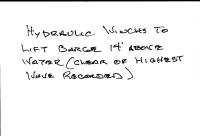 HYDRAULIC WINCHS TO
LIFT BARGE 14' ABOVE
WATER (CLEAR OF HIGHEST
WAVE RECORDED)